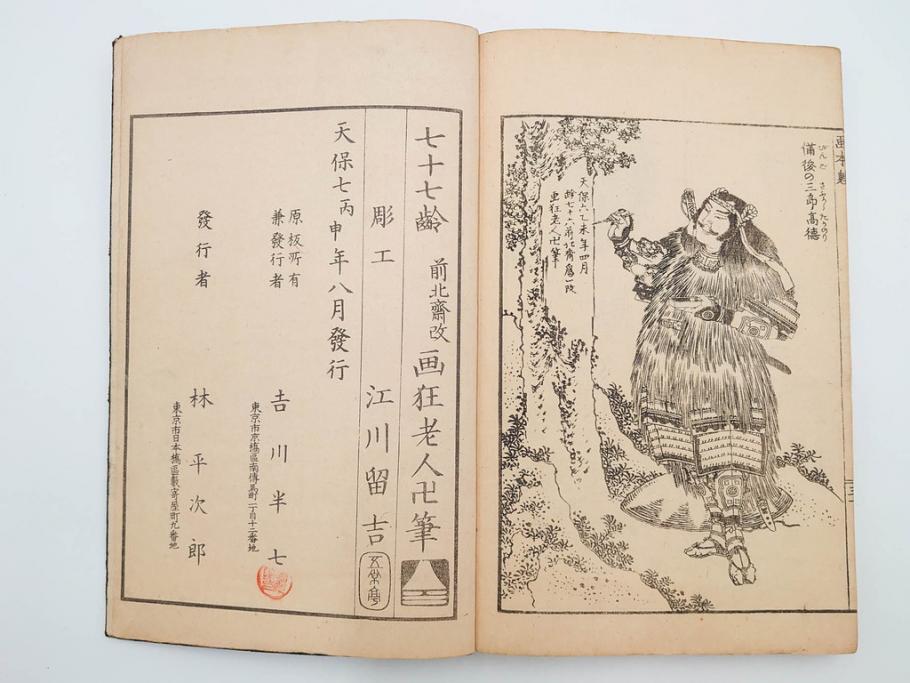 画本魁
備後の三郎高徳
びんご さぶらう たかのり
天保六乙未年四月
齢七十六前北斎爲一改
画狂老人卍筆
七十七齢 前北齋改 画狂老人卍筆
彫工 江川留吉
天保七丙申年八月發行
原板所有
兼發行者
吉川半七
東京市京橋區南傳馬町一丁目十二番地
發行者 林平次郎
東京市日本橋區數寄屋町九番地